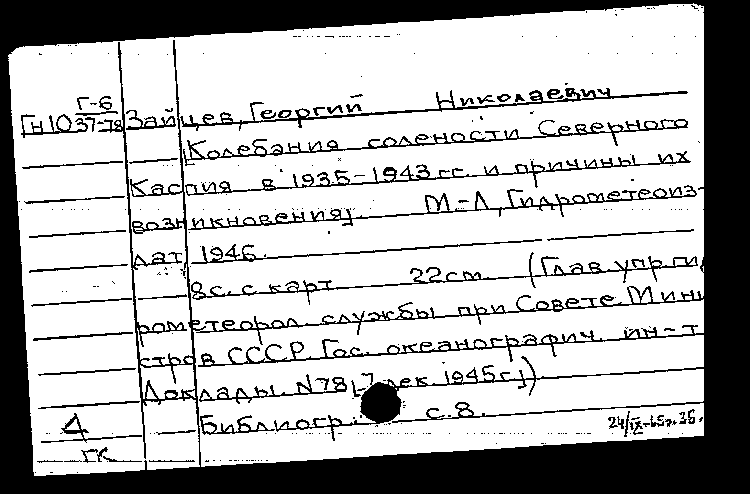 Г-6
Гн10 37-78 Зайцев, Георгий Николаевич
[Колебания солености Северного
Каспия в 1935-1943 гг. и причины их
возникновения]. М-Л, Гидрометеоиз-
дат, 1946.
8с. с карт. 22см. (Глав. упр. гид
рометеорол. службы при Совете Мини
стров СССР. Гос. океанографич. ин-т
Доклады. N 78 [7 дек. 1945 г.])
Библиогр.: с.8.
4
ГК
24/IX-65г.